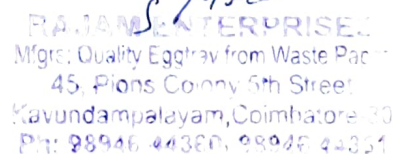 RAJAM ENTERPRISES
Mfgrs: Quality Eggtray from Waste Paper
45, Pions Colony 5th Street
Kavundampalayam, Coimbatore-30
Ph: 98946 44360, 98946 44361